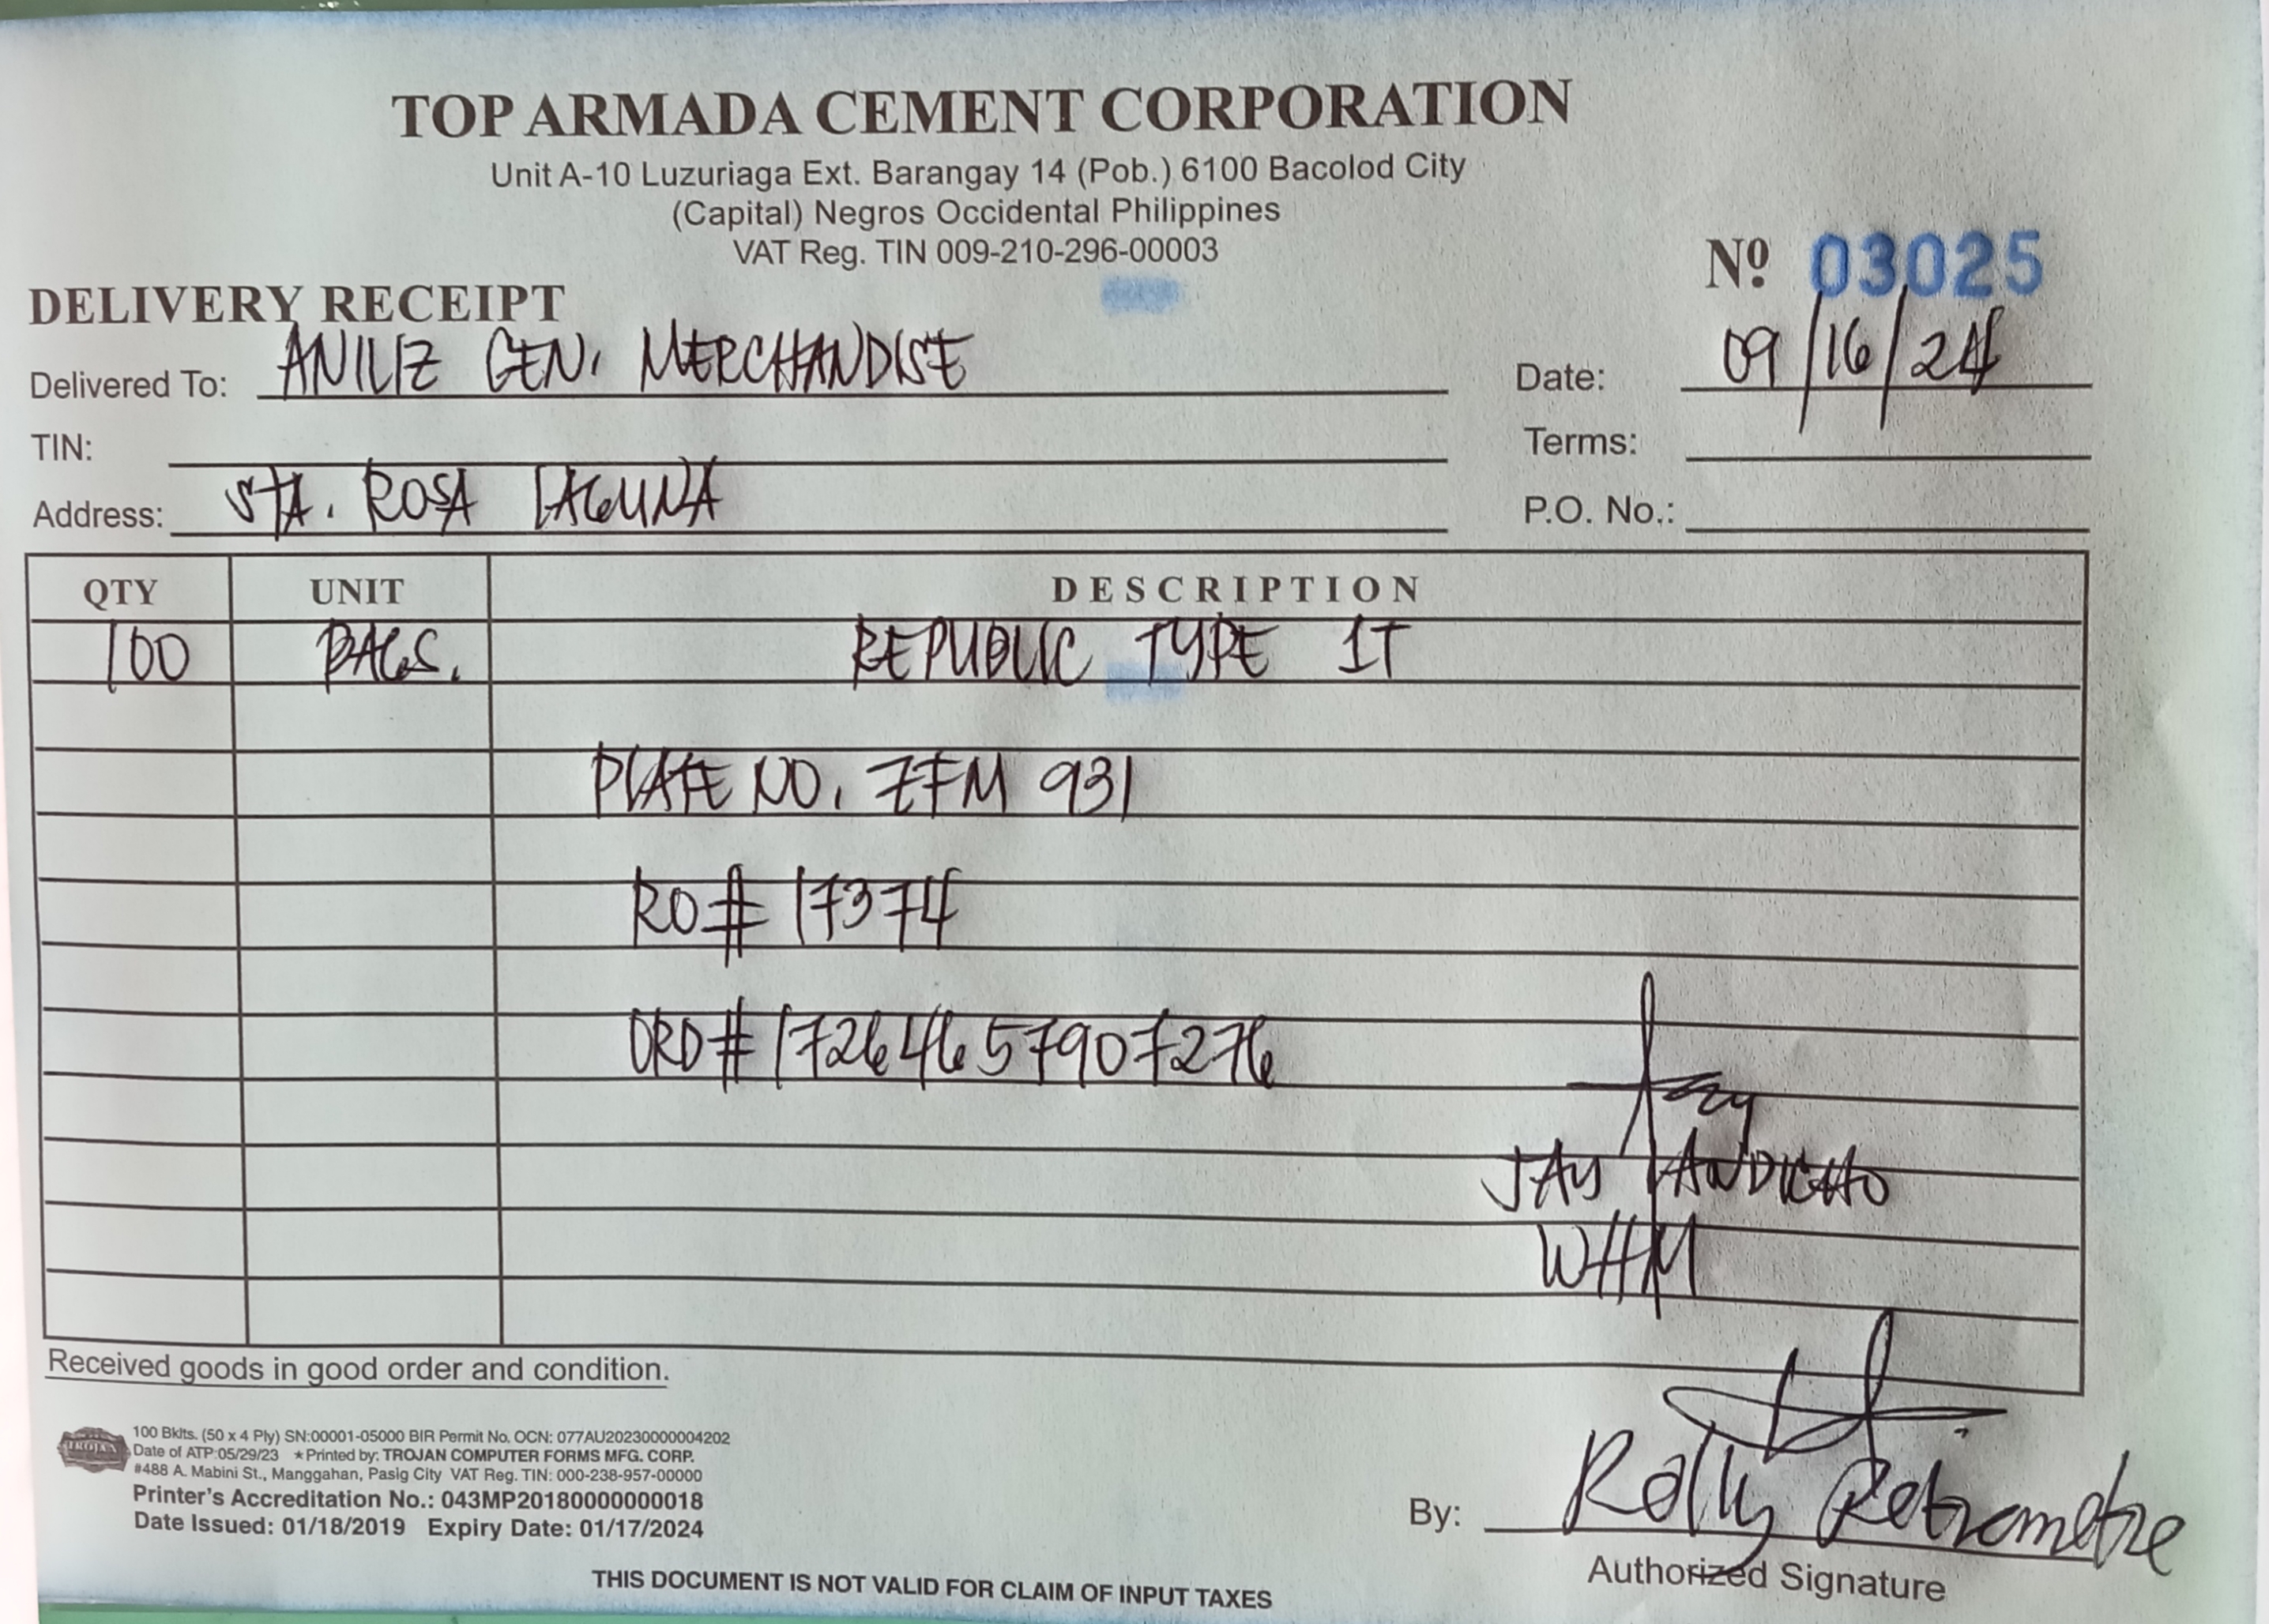 TOP ARMADA CEMENT CORPORATION
Unit A-10 Luzuriaga Ext. Barangay 14 (Pob.) 6100 Bacolod City
(Capital) Negros Occidental Philippines
VAT Reg. TIN 009-210-296-00003
Nº 03025
DELIVERY RECEIPT
Delivered To: ANILIZ GEN. MERCHANDISE
Date: 09/16/24
TIN:
Terms:
Address: STA. ROSA LAGUNA
P.O. No.:
QTY UNIT DESCRIPTION
100 BAGS. REPUBLIC TYPE 1T
PLATE NO. ZFM 931
RO# 17374
ORD# 17264657907276
JAY ANDICHO
WHM
Received goods in good order and condition.
TROJAN
100 Bklts. (50 x 4 Ply) SN:00001-05000 BIR Permit No. OCN: 077AU20230000004202
Date of ATP:05/29/23 *Printed by: TROJAN COMPUTER FORMS MFG. CORP.
#488 A. Mabini St., Manggahan, Pasig City VAT Reg. TIN: 000-238-957-00000
Printer's Accreditation No.: 043MP20180000000018
Date Issued: 01/18/2019 Expiry Date: 01/17/2024
By: Rolly
Authorized Signature
THIS DOCUMENT IS NOT VALID FOR CLAIM OF INPUT TAXES